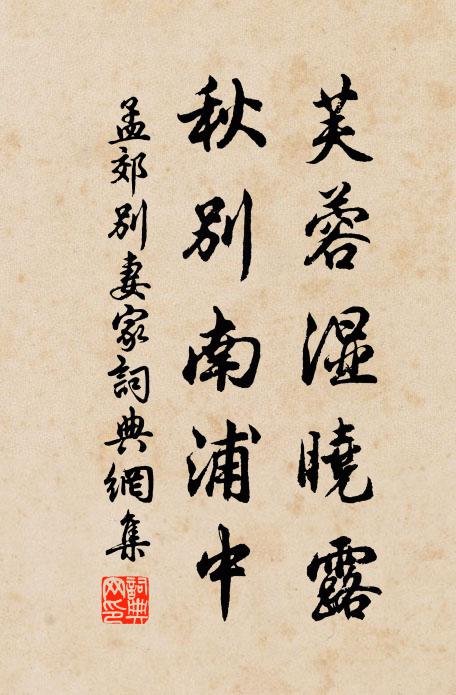 芙蓉湿曉露
秋别南浦中
孟郊别妻家詞典網集
詞典網印